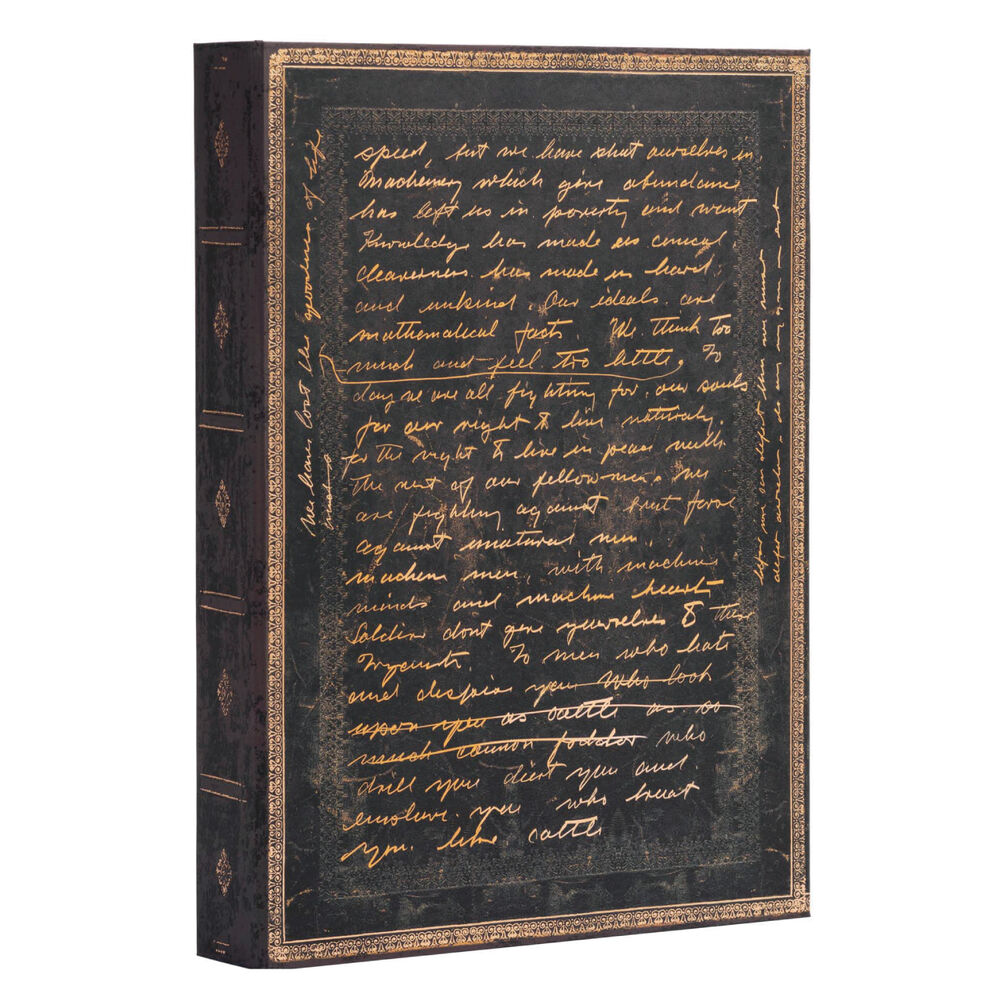 speed, but we have shut ourselves in
Machinery which give abundance
has left us in poverty and want
Knowledge has made us cinical
cleaverness has made us hard
and unkind. Our ideals are
mathematical facts. We think too
much and feel too little. To
day we are all fighting for our souls
for our right to live naturaly
for the right to live in peace with
the rest of our fellowmen. We
are fighting against brut force
against unatural men.
machine men, with machine
minds and machine hearts
Soldiers dont give yourselves to these
To men who hate
and despise you who look
upon you as cattle as so
much cannon fodder who
drill you diert you and
enslave you who treat
you like cattle
We have lost the goodness of life